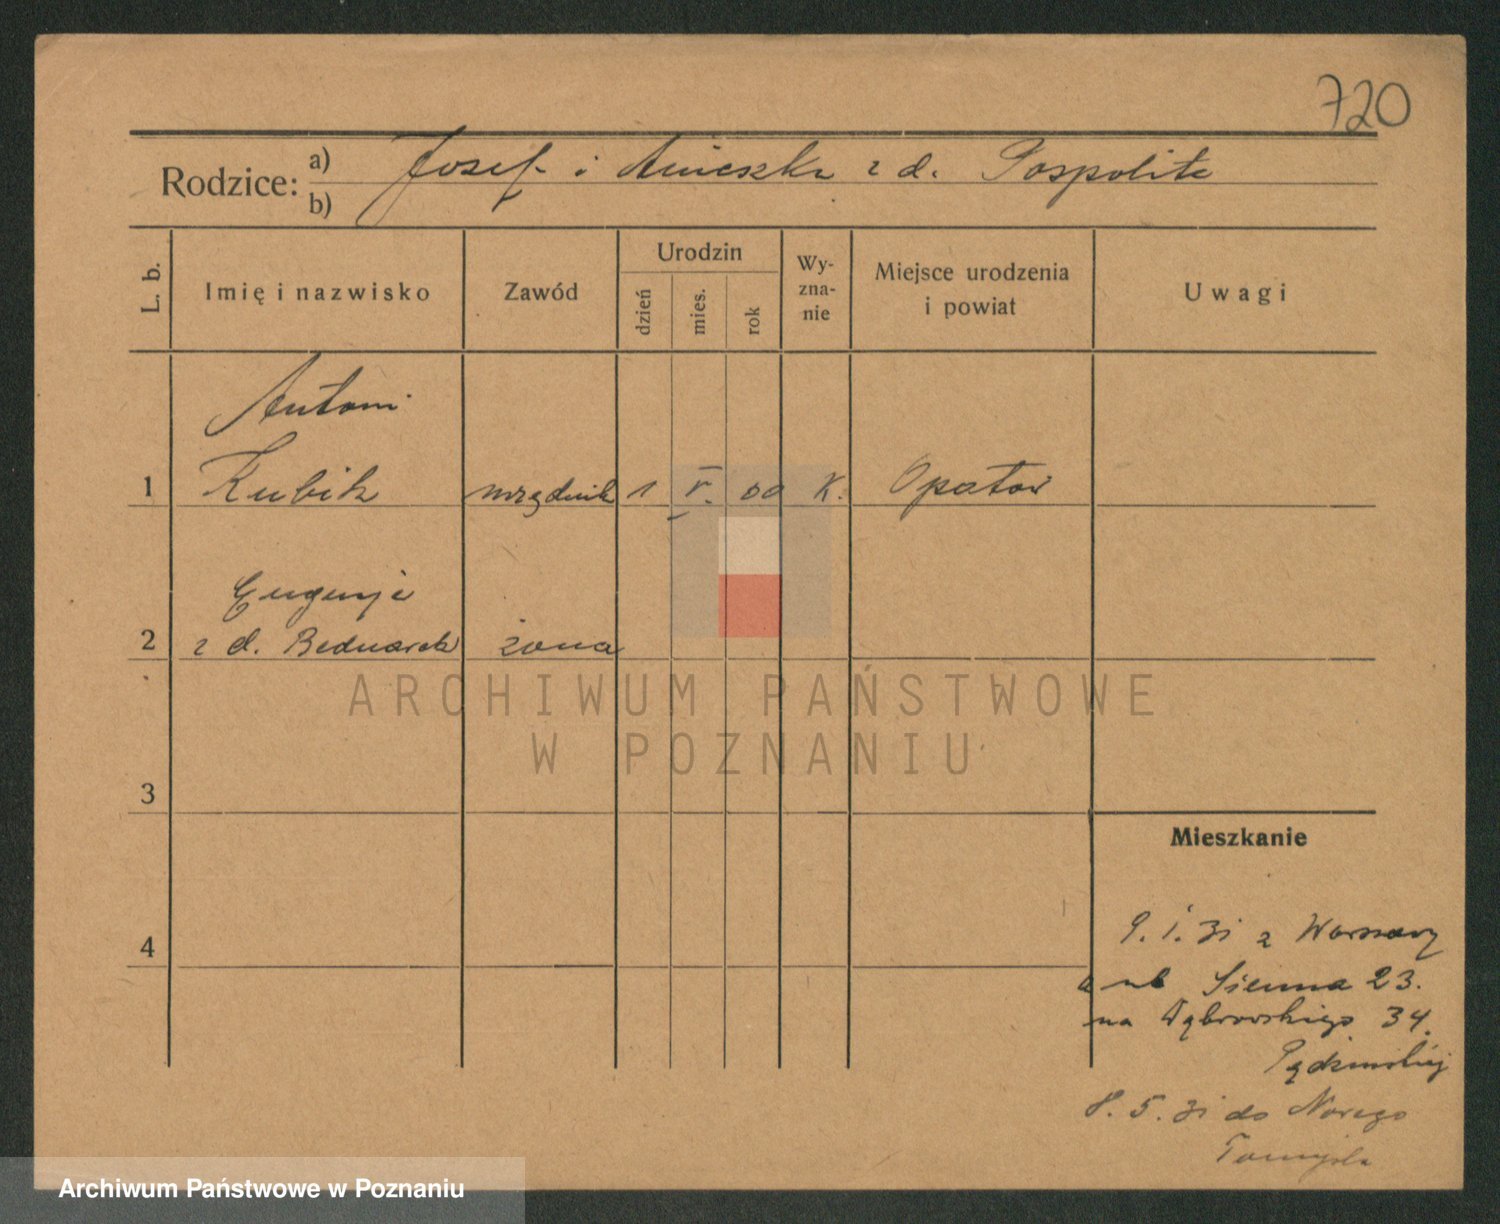 720
Rodzice: a) Josef i Anieszka z d. Pospolita
b)
L. b.
Imię i nazwisko
Zawód
Urodzin
dzień
mies.
rok
Wy-
zna-
nie
Miejsce urodzenia
i powiat
Uwagi
Antoni
1 Kubik urzędnik 1 V. 00 K. Opatów
Eugenja
2 z d. Bednarek żona
3
4
Mieszkanie
9. 1. 31 z Warszawy
Sienna 23.
na Dąbrowskiego 34.
8. 5. 31 do Nowego
Tomyśla
ARCHIWUM PAŃSTWOWE
W POZNANIU
Archiwum Państwowe w Poznaniu